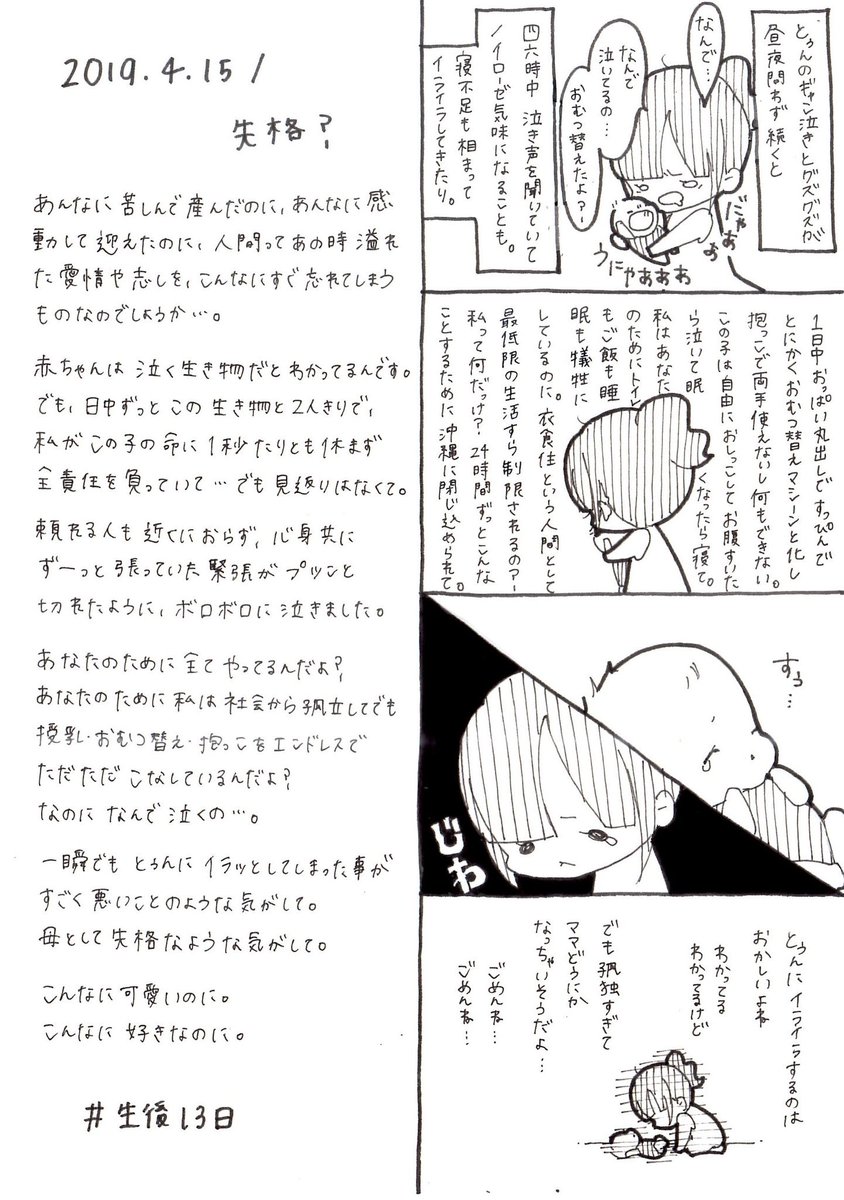 2019.4.15/
失格?
あんなに苦しんで産んだのに、あんなに感
動して迎えたのに、人間ってあの時溢れ
た愛情や志しを、こんなにすぐ忘れてしまう
ものなのでしょうか…。
赤ちゃんは泣く生き物だとわかってるんです。
でも、日中ずっとこの生き物と2人きりで、
私がこの子の命に1秒たりとも休まず
全責任を負っていて…でも見返りはなくて。
頼れる人も近くにおらず、心身共に
ずーっと張っていた緊張がプツンと
切れたように、ボロボロに泣きました。
あなたのために全てやってるんだよ?
あなたのために私は社会から孤立してでも
授乳・おむつ替え・抱っこをエンドレスで
ただただこなしているんだよ?
なのになんで泣くの…。
一瞬でもとぅんにイラッとしてしまった事が
すごく悪いことのような気がして。
母として失格なような気がして。
こんなに可愛いのに。
こんなに好きなのに。
#生後13日
とぅんのギャン泣きとグズグズが
昼夜問わず続くと
なんで…
なんで
泣いてるの…
おむつ替えたよ?
にゃおぉぉ
うにゃあぁぁぁ
四六時中泣き声を聞いていて
ノイローゼ気味になることも。
寝不足も相まって
イライラしてきたり。
1日中おっぱい丸出しですっぴんで
とにかくおむつ替えマシーンと化し
抱っこで両手使えないし何もできない。
この子は自由におしっこしてお腹すいた
ら泣いて眠くなったら寝て。
私はあなた
のためにトイレ
もご飯も睡
眠も犠牲に
しているのに。衣食住という人間として
最低限の生活すら制限されるの?
私って何だっけ?24時間ずっとこんな
ことするために沖縄に閉じ込められて。
すぅ…
じわ
とぅんにイライラするのは
おかしいよね
わかってる
わかってるけど
でも孤独すぎて
ママどうにか
なっちゃいそうだよ…
ごめんね…
ごめんね…